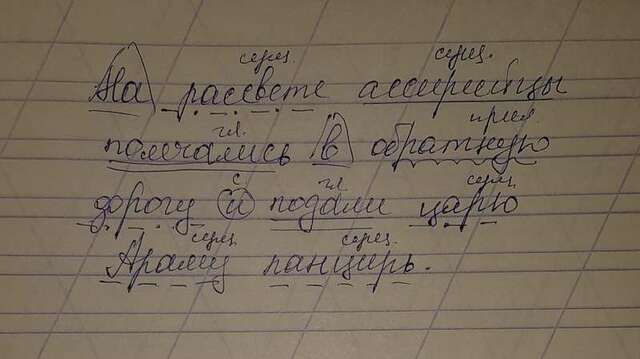 сущ. сущ.
На рассвете ассирийцы
гл. прил.
помчались в обратную
с гл. сущ.
дорогу и подали царю
сущ. сущ.
Араму панцирь.